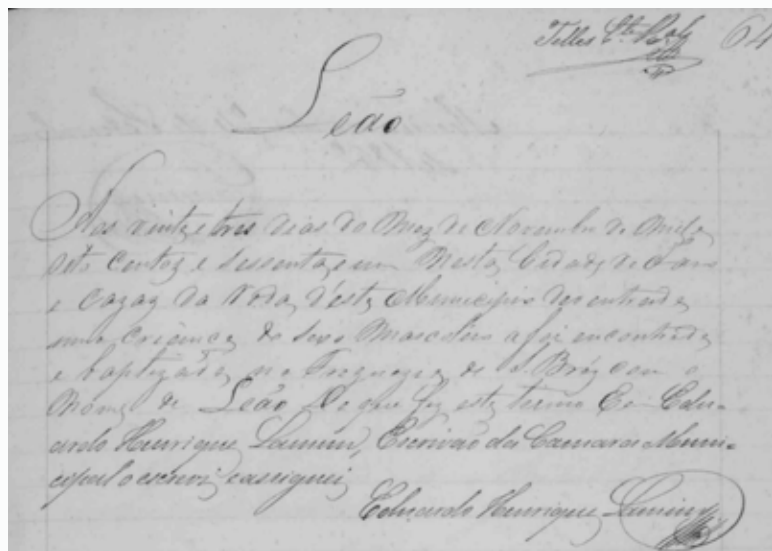 Telles 64
Leão
Aos vinte e tres dias do Mez de Novembro de Mil e
oito Centos e Sessenta e um Nesta Cidade de Faro
e Cazas da Roda d'este Municipio deu entrada
uma Criança do Sexo Masculino a foi encontrada
e baptizada na Freguezia de S. Bráz com o
Nome de Leão Do que fiz este termo Eu Edu-
ardo Henrique Escrivão da Camara Muni-
cipal o escrevi e assignei
Eduardo Henrique